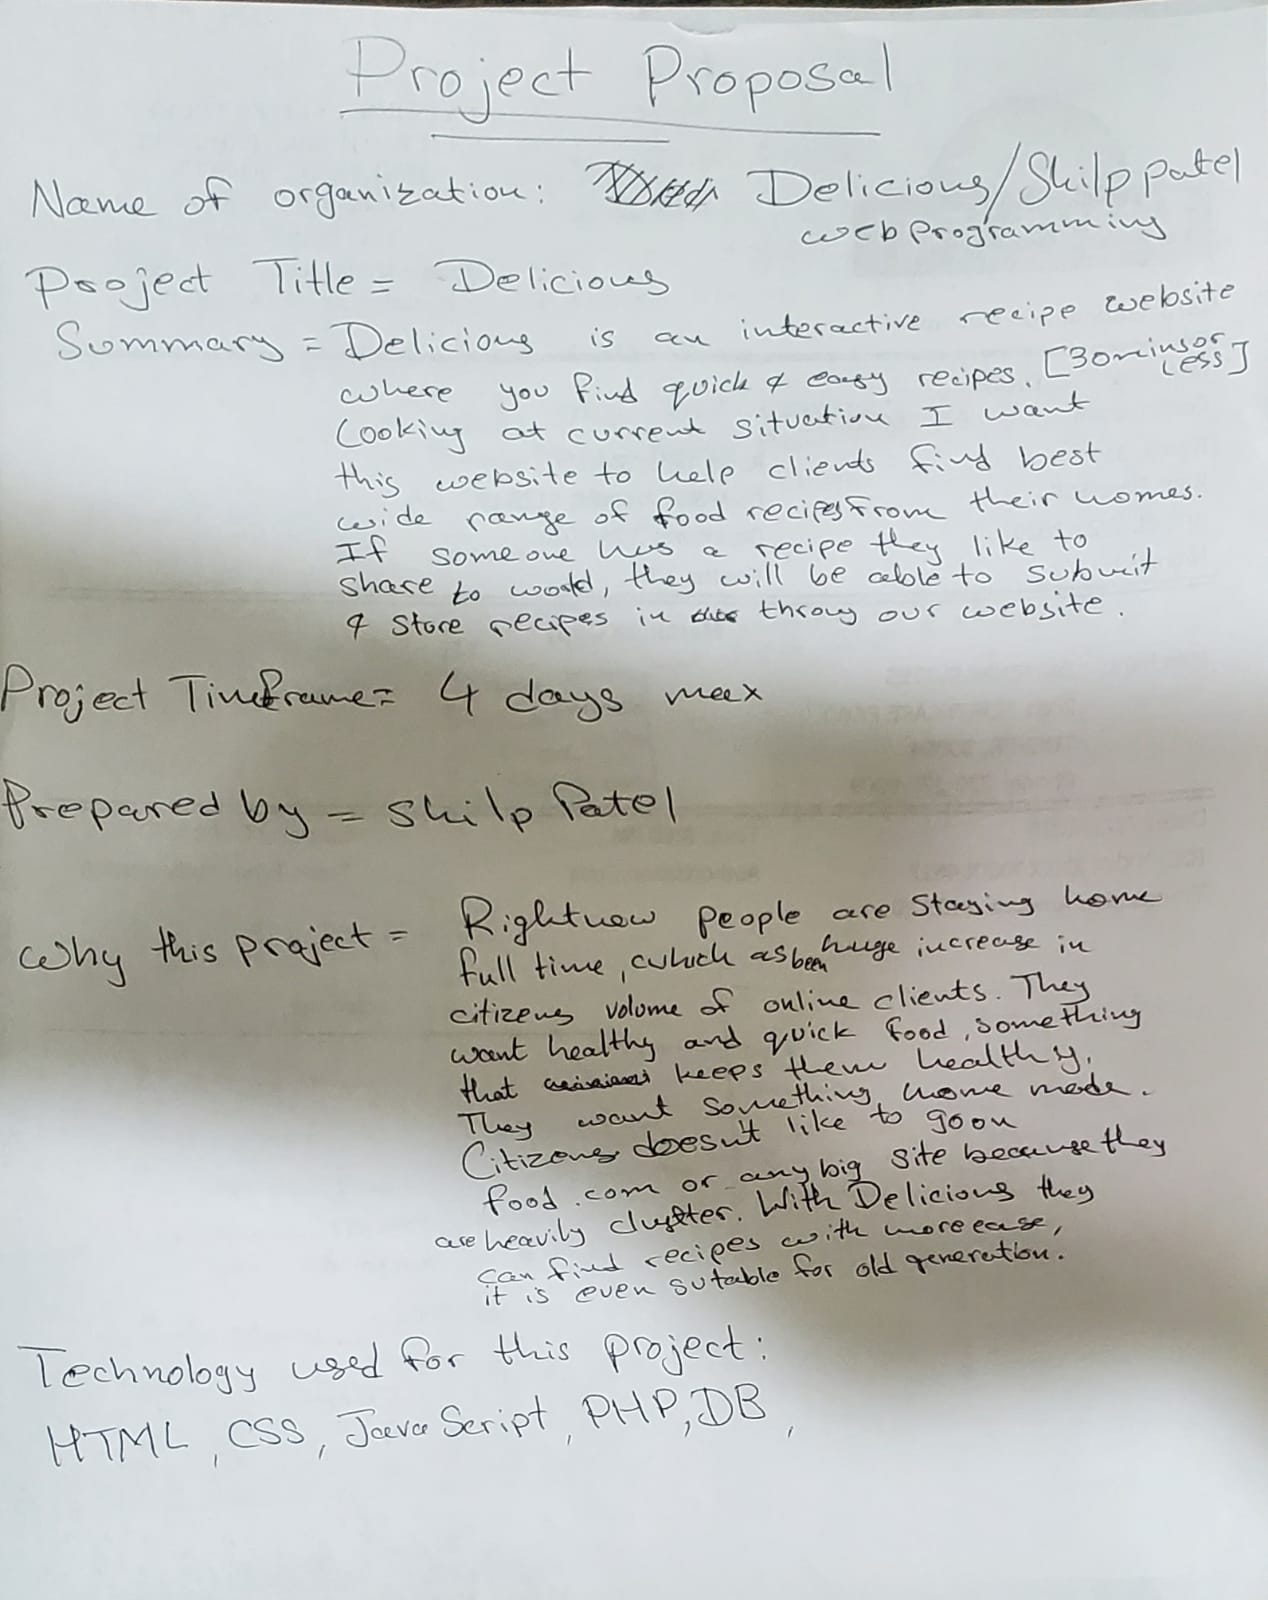 Project Proposal
Name of organization: Delicious/Shilp patel
web programming
Project Title = Delicious
Summary = Delicious is an interactive recipe website
where you find quick & easy recipes. [30 mins or Less]
Looking at current situation I want
this website to help clients find best
wide range of food recipes from their homes.
If someone has a recipe they like to
share to world, they will be able to submit
& store recipes in throug our website.
Project Timeframe = 4 days max
Prepared by = Shilp Patel
Why this project = Rightnow people are staying home
full time, which as been huge increase in
citizens volume of online clients. They
want healthy and quick food, something
that keeps them healthy.
They want something home made.
Citizens doesn't like to go on
food.com or any big site because they
are heavily cluster. With Delicious they
can find recipes with more ease,
it is even sutable for old generation.
Technology used for this project:
HTML, CSS, JavaScript, PHP, DB,